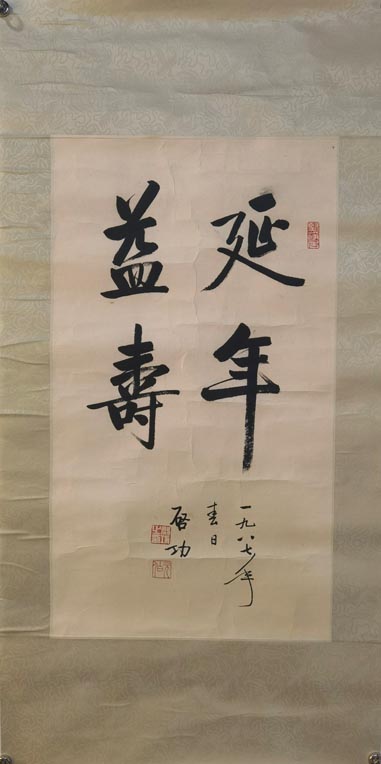 延年
益壽
一九八七年
春日
啓功